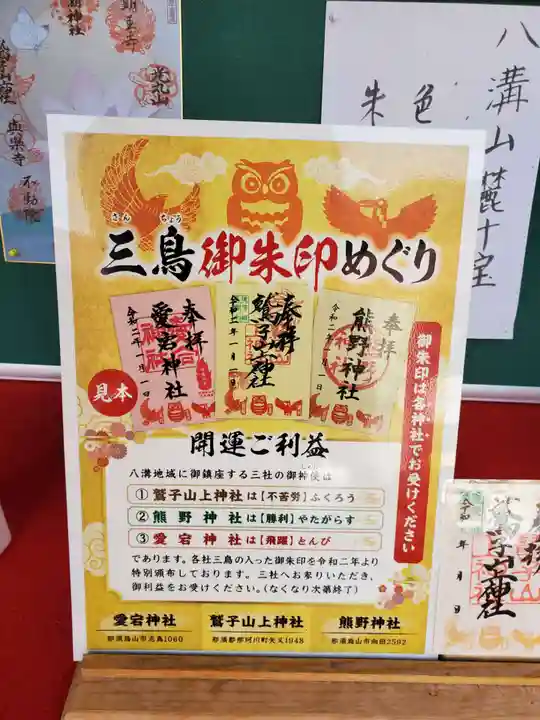 八溝山麓十宝
朱色
さん ちょう
三鳥御朱印めぐり
奉拝
愛宕神社
令和二年一月一日
奉拝
鷲子山上神社
令和二年一月一日
奉拝
熊野神社
見本
御朱印は各神社でお受けください
開運ご利益
八溝地域に御鎮座する三社の御神使は
① 鷲子山上神社は【不苦労】ふくろう
② 熊野神社は【勝利】やたがらす
③ 愛宕神社は【飛躍】とんび
であります。各社三鳥の入った御朱印を令和二年より
特別頒布しております。三社へお参りいただき、
御利益をお受けください。(なくなり次第終了)
愛宕神社
那須烏山市志鳥1060
鷲子山上神社
那須郡那珂川町矢又1948
熊野神社
那須烏山市向田2592